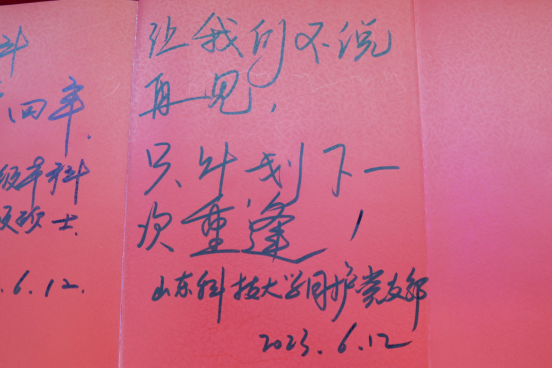 斗
四年.
级本科
硕士.
.6.12.
让我们不说
再见,
只计划下一
次重逢!
山东科技大学同护党支部
2023.6.12